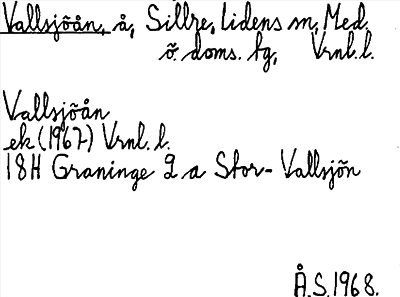 Vallsjöån, å, Sillre, Lidens sn, Med.
ö. doms. tg, Vrnl.l.
Vallsjöån
ek (1967) Vrnl. l.
18H Graninge 9 a Stor-Vallsjön
Å.S. 1968.